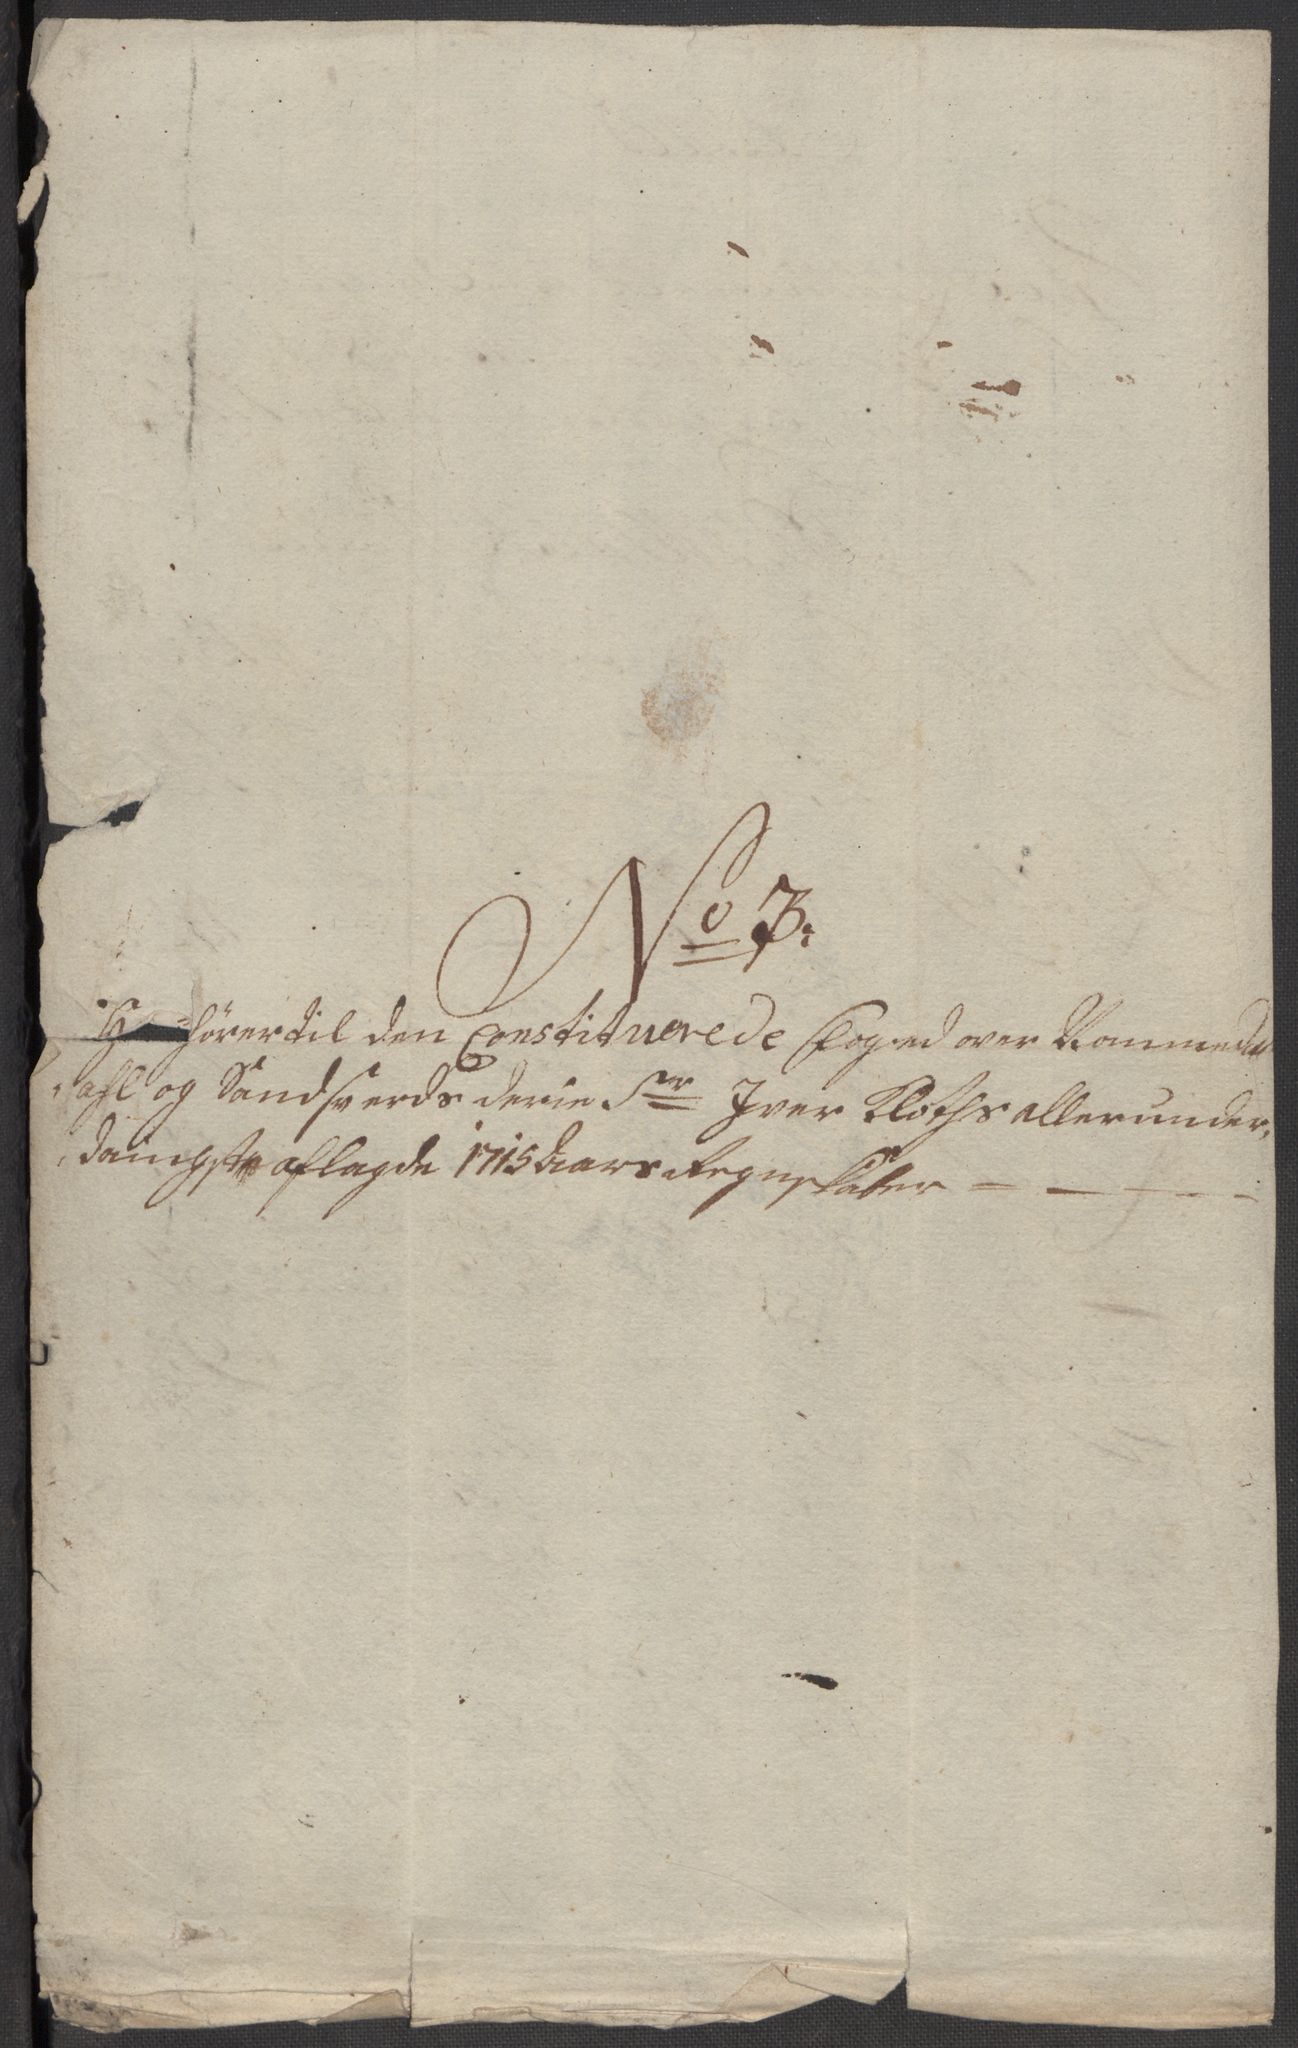 No 3:
hörer til den Constituerede Foged over Nommeda
ahl og Sandsverds Sr Iver Cloths allerunder,
danigste aflagde 1715 Aars Regnskaber